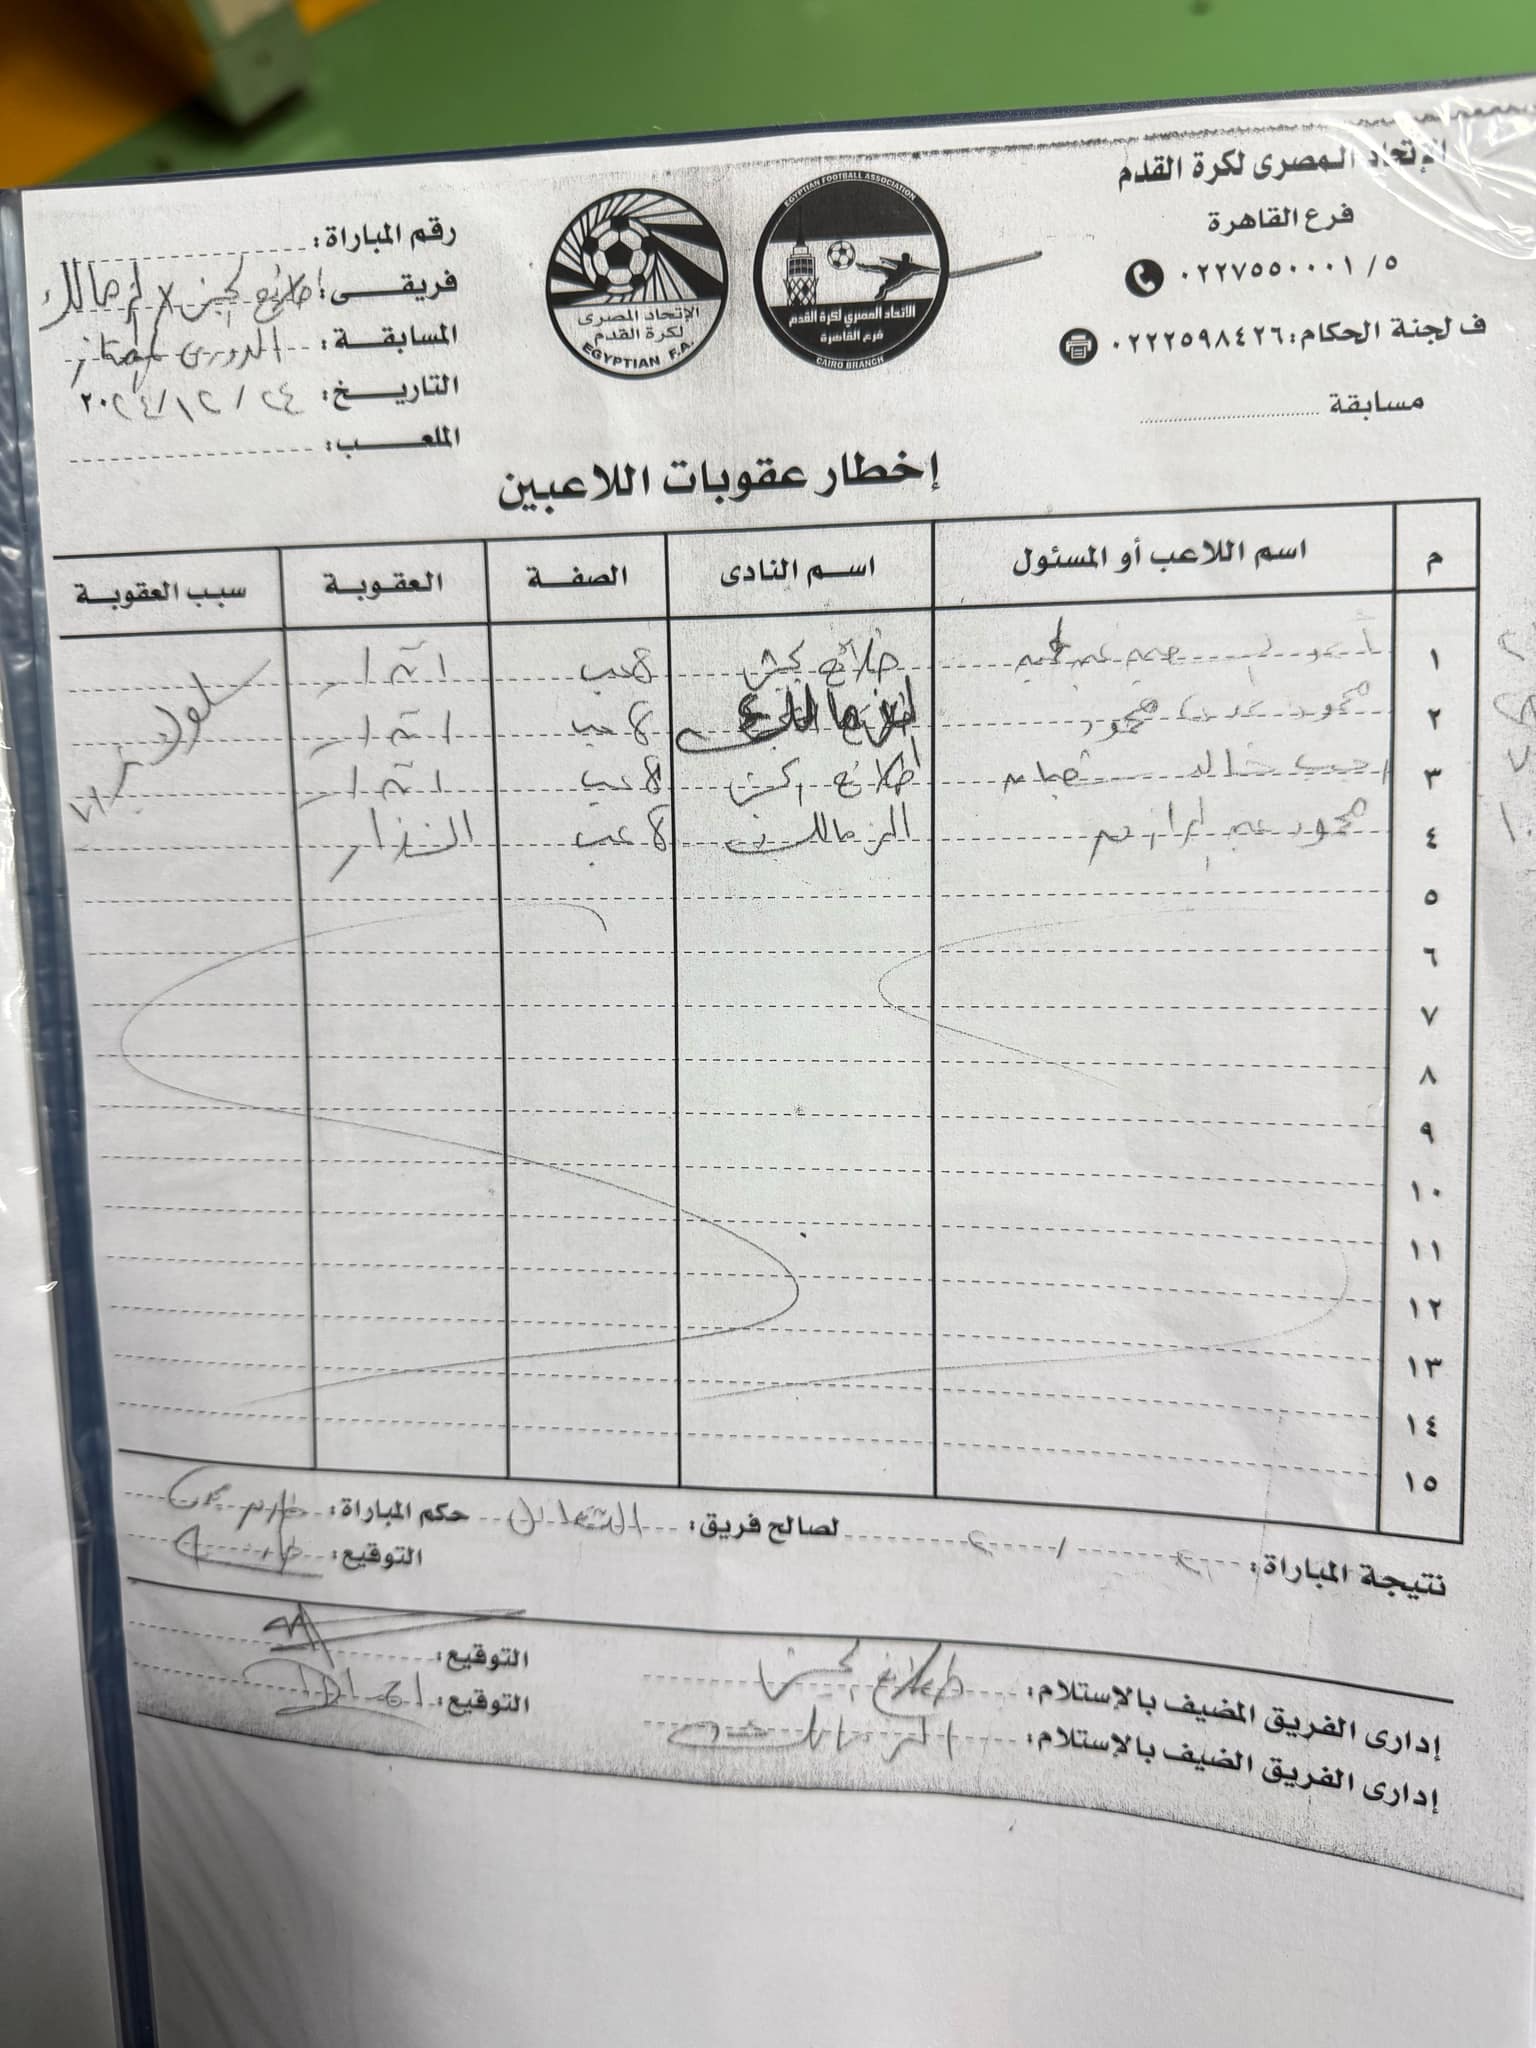 الإتحاد المصرى لكرة القدم
فرع القاهرة
٠٢٢٧٥٥٠٠٠١ / ٥
ف لجنة الحكام: ٠٢٢٢٥٩٨٤٢٦
مسابقة
EGYPTIAN FOOTBALL ASSOCIATION
الاتحاد المصري لكرة القدم
فرع القاهرة
CAIRO BRANCH
الإتحاد المصرى
لكرة القدم
EGYPTIAN F.A.
رقم المباراة:
فريقى: طلائع الجيش × الزمالك
المسابقة: الدورى الممتاز
التاريخ: ٢٤ / ١٢ / ٢٠٢٤
الملعب:
إخطار عقوبات اللاعبين
م اسم اللاعب أو المسئول اسم النادى الصفة العقوبة سبب العقوبة
١ طلائع الجيش لاعب انذار سلوك
٢ محمود محمود الزمالك لاعب انذار
٣ خالد طلائع الجيش لاعب انذار
٤ محمود عبد الزمالك لاعب انذار
٥
٦
٧
٨
٩
١٠
١١
١٢
١٣
١٤
١٥
نتيجة المباراة: ٢ / ٢ لصالح فريق: التعادل حكم المباراة:
التوقيع:
إدارى الفريق المضيف بالإستلام: طلائع الجيش التوقيع:
إدارى الفريق الضيف بالإستلام: الزمالك التوقيع: